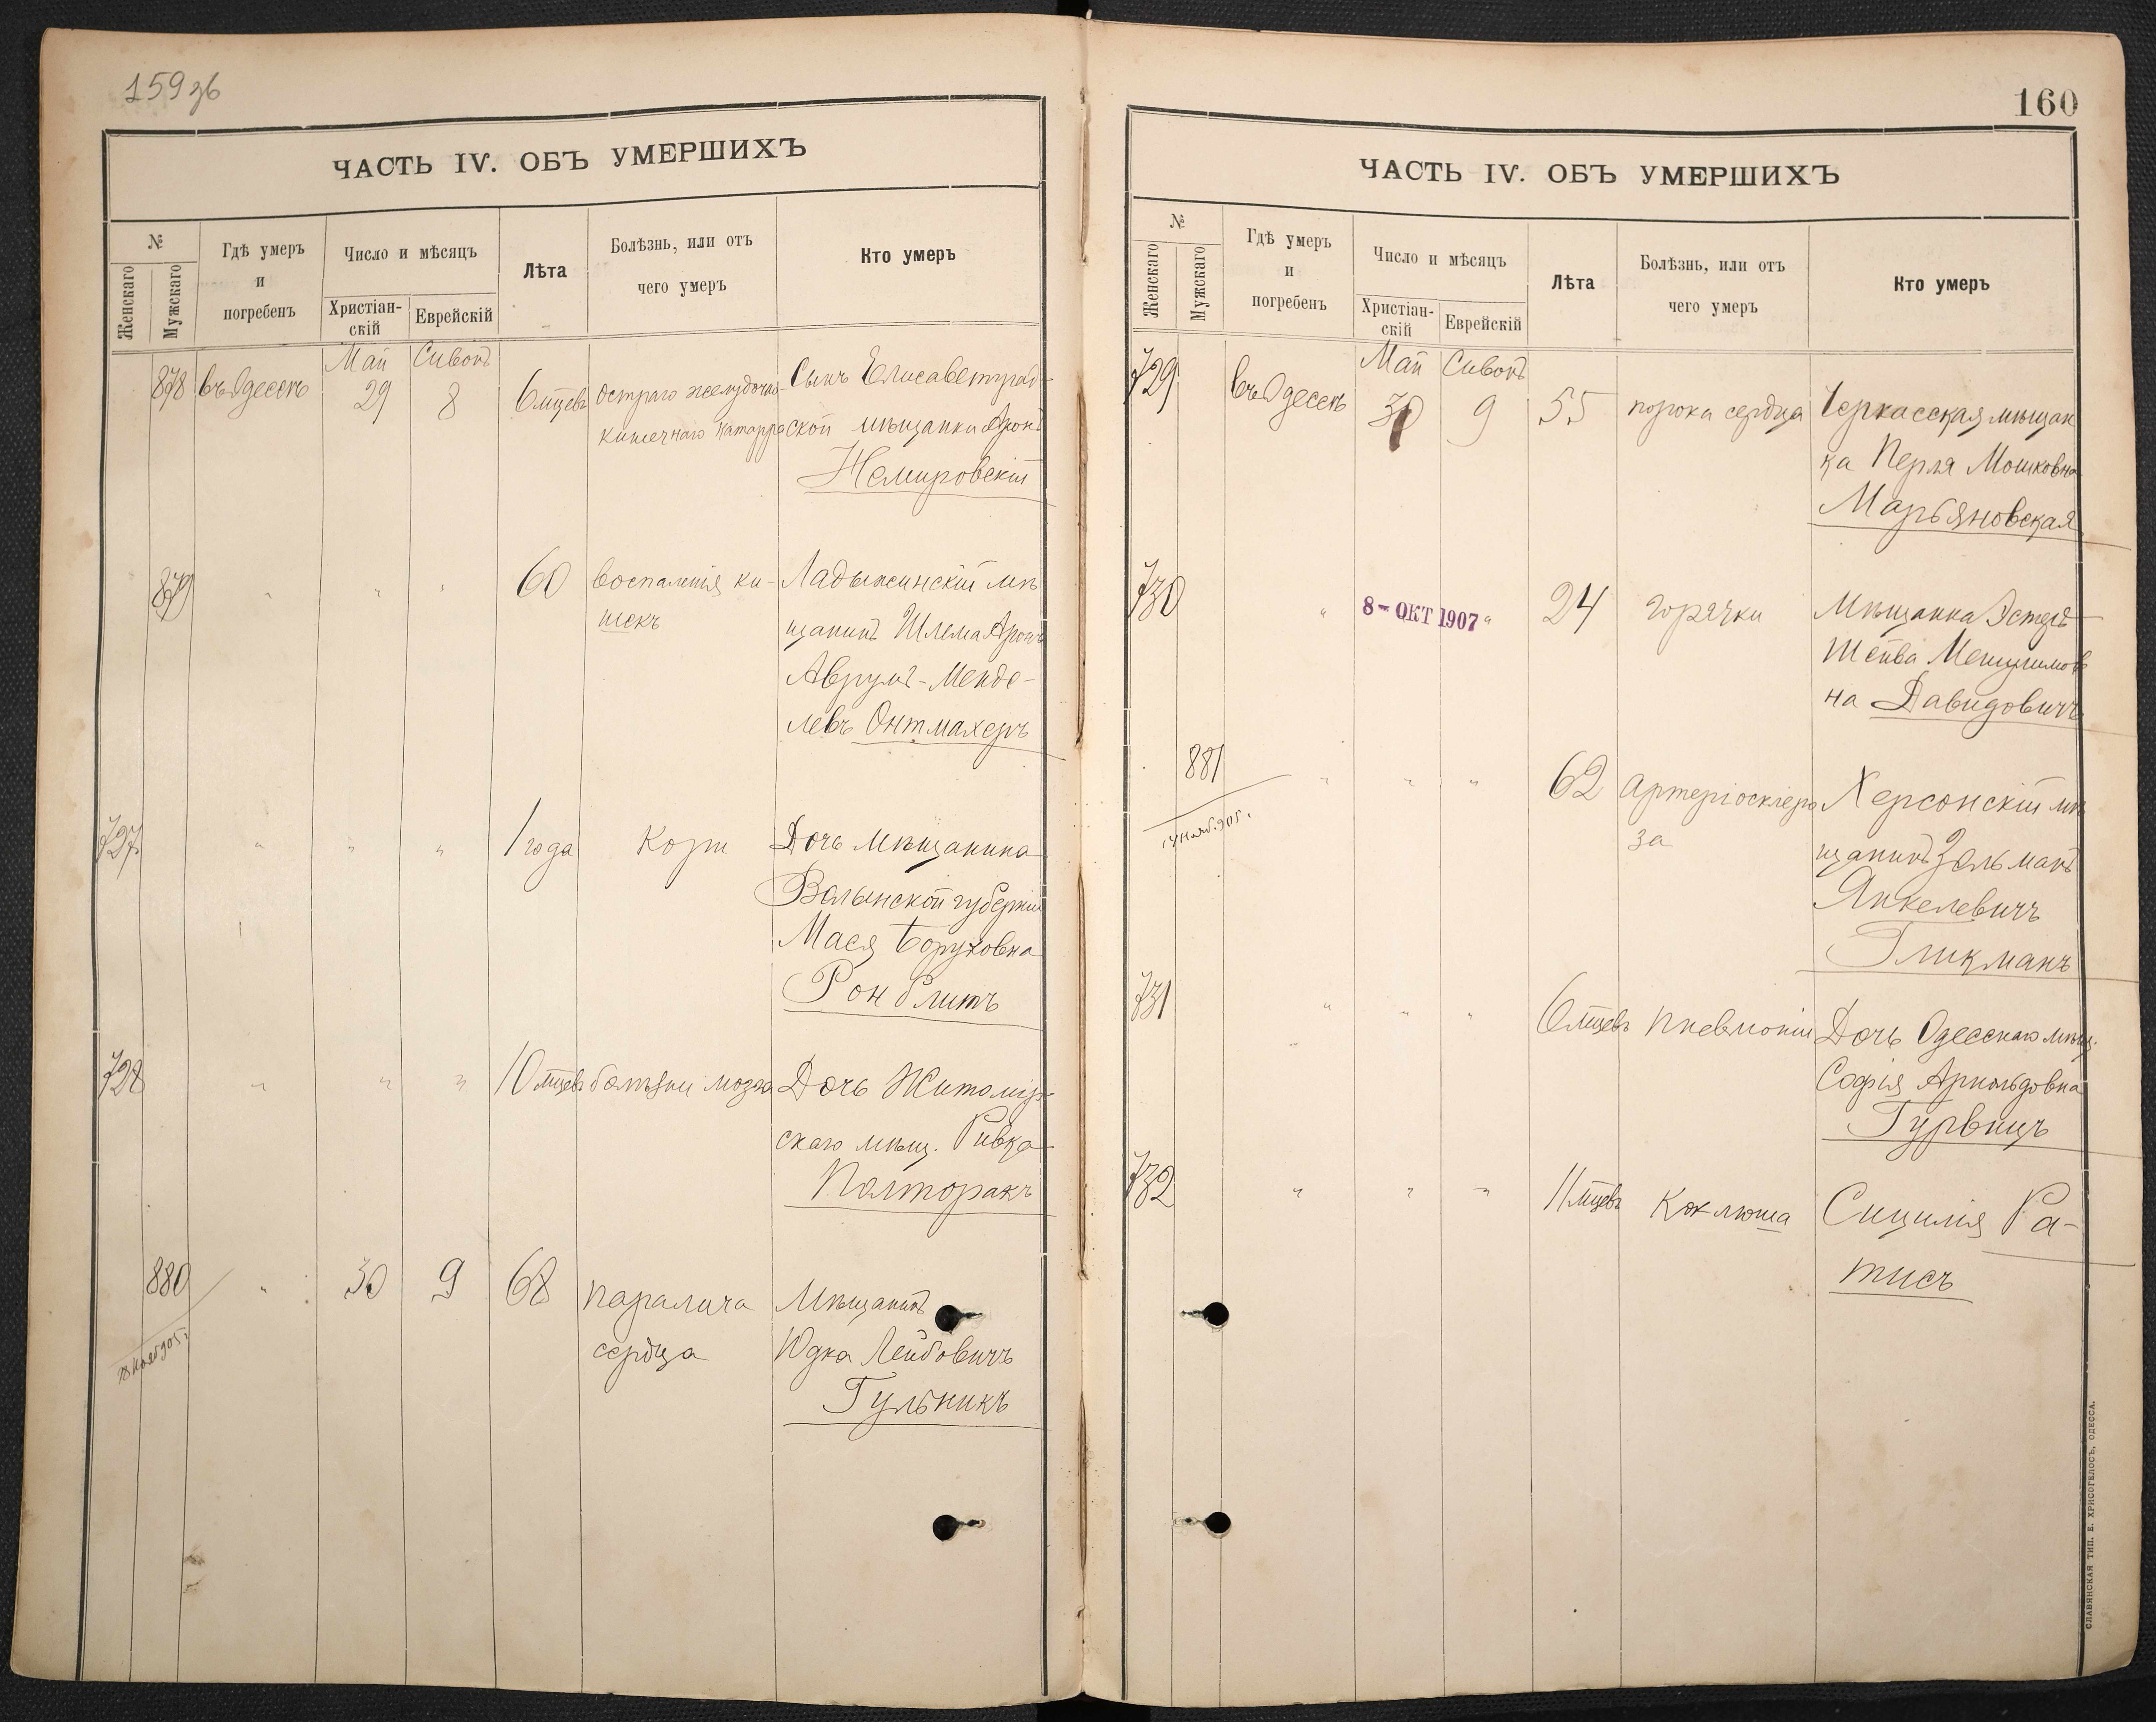 159 зв
ЧАСТЬ IV. ОБЪ УМЕРШИХЪ
№
Женскаго
Мужскаго
Гдѣ умеръ
и
погребенъ
Число и мѣсяцъ
Христіан-
скій
Еврейскій
Лѣта
Болѣзнь, или отъ
чего умеръ
Кто умеръ
Май Сивонъ
878 въ Одессѣ 29 8 6 мцевъ остраго желудочно- Сынъ Елисаветград-
кишечнаго катарра ской мѣщанки Аронъ
Немировскій
879 " " " 60 воспаленія ки- Ладыжинскій мѣ
шекъ щанинъ Шлема Аронъ
Аврумъ-Менде-
левъ Онтмахеръ
727 " " " 1 года Кори Дочь мѣщанина
Волынской губерніи
Мася Боруховна
Ронблитъ
728 " " " 10 мцевъ болѣзни мозга Дочь Житомір-
скаго мѣщ. Ривка
Полторакъ
880 " 30 9 68 паралича Мѣщанинъ
сердца Юдка Лейбовичъ
Гульникъ
160
ЧАСТЬ IV. ОБЪ УМЕРШИХЪ
№
Женскаго
Мужскаго
Гдѣ умеръ
и
погребенъ
Число и мѣсяцъ
Христіан-
скій
Еврейскій
Лѣта
Болѣзнь, или отъ
чего умеръ
Кто умеръ
Май Сивонъ
729 въ Одессѣ 30 9 55 порока сердца Черкасская мѣщан
ка Перля Мошковна
Марьяновская
730 " 8-ОКТ 1907 " 24 горячки Мѣщанка Эстеръ
Шейва Мешулимов
на Давидовичъ
881 " " " 62 Артеріосклеро Херсонскій мѣ
за щанинъ Зельманъ
Янкелевичъ
Гликманъ
731 " " " 6 мцевъ пневмоніи Дочь Одесскаго мѣщ.
Софія Арнольдовна
Гурвицъ
732 " " " 11 мцевъ Коклюша Сицилія Ра-
тисъ
СЛАВЯНСКАЯ ТИП. Е. ХРИСОГЕЛОСЪ, ОДЕССА.